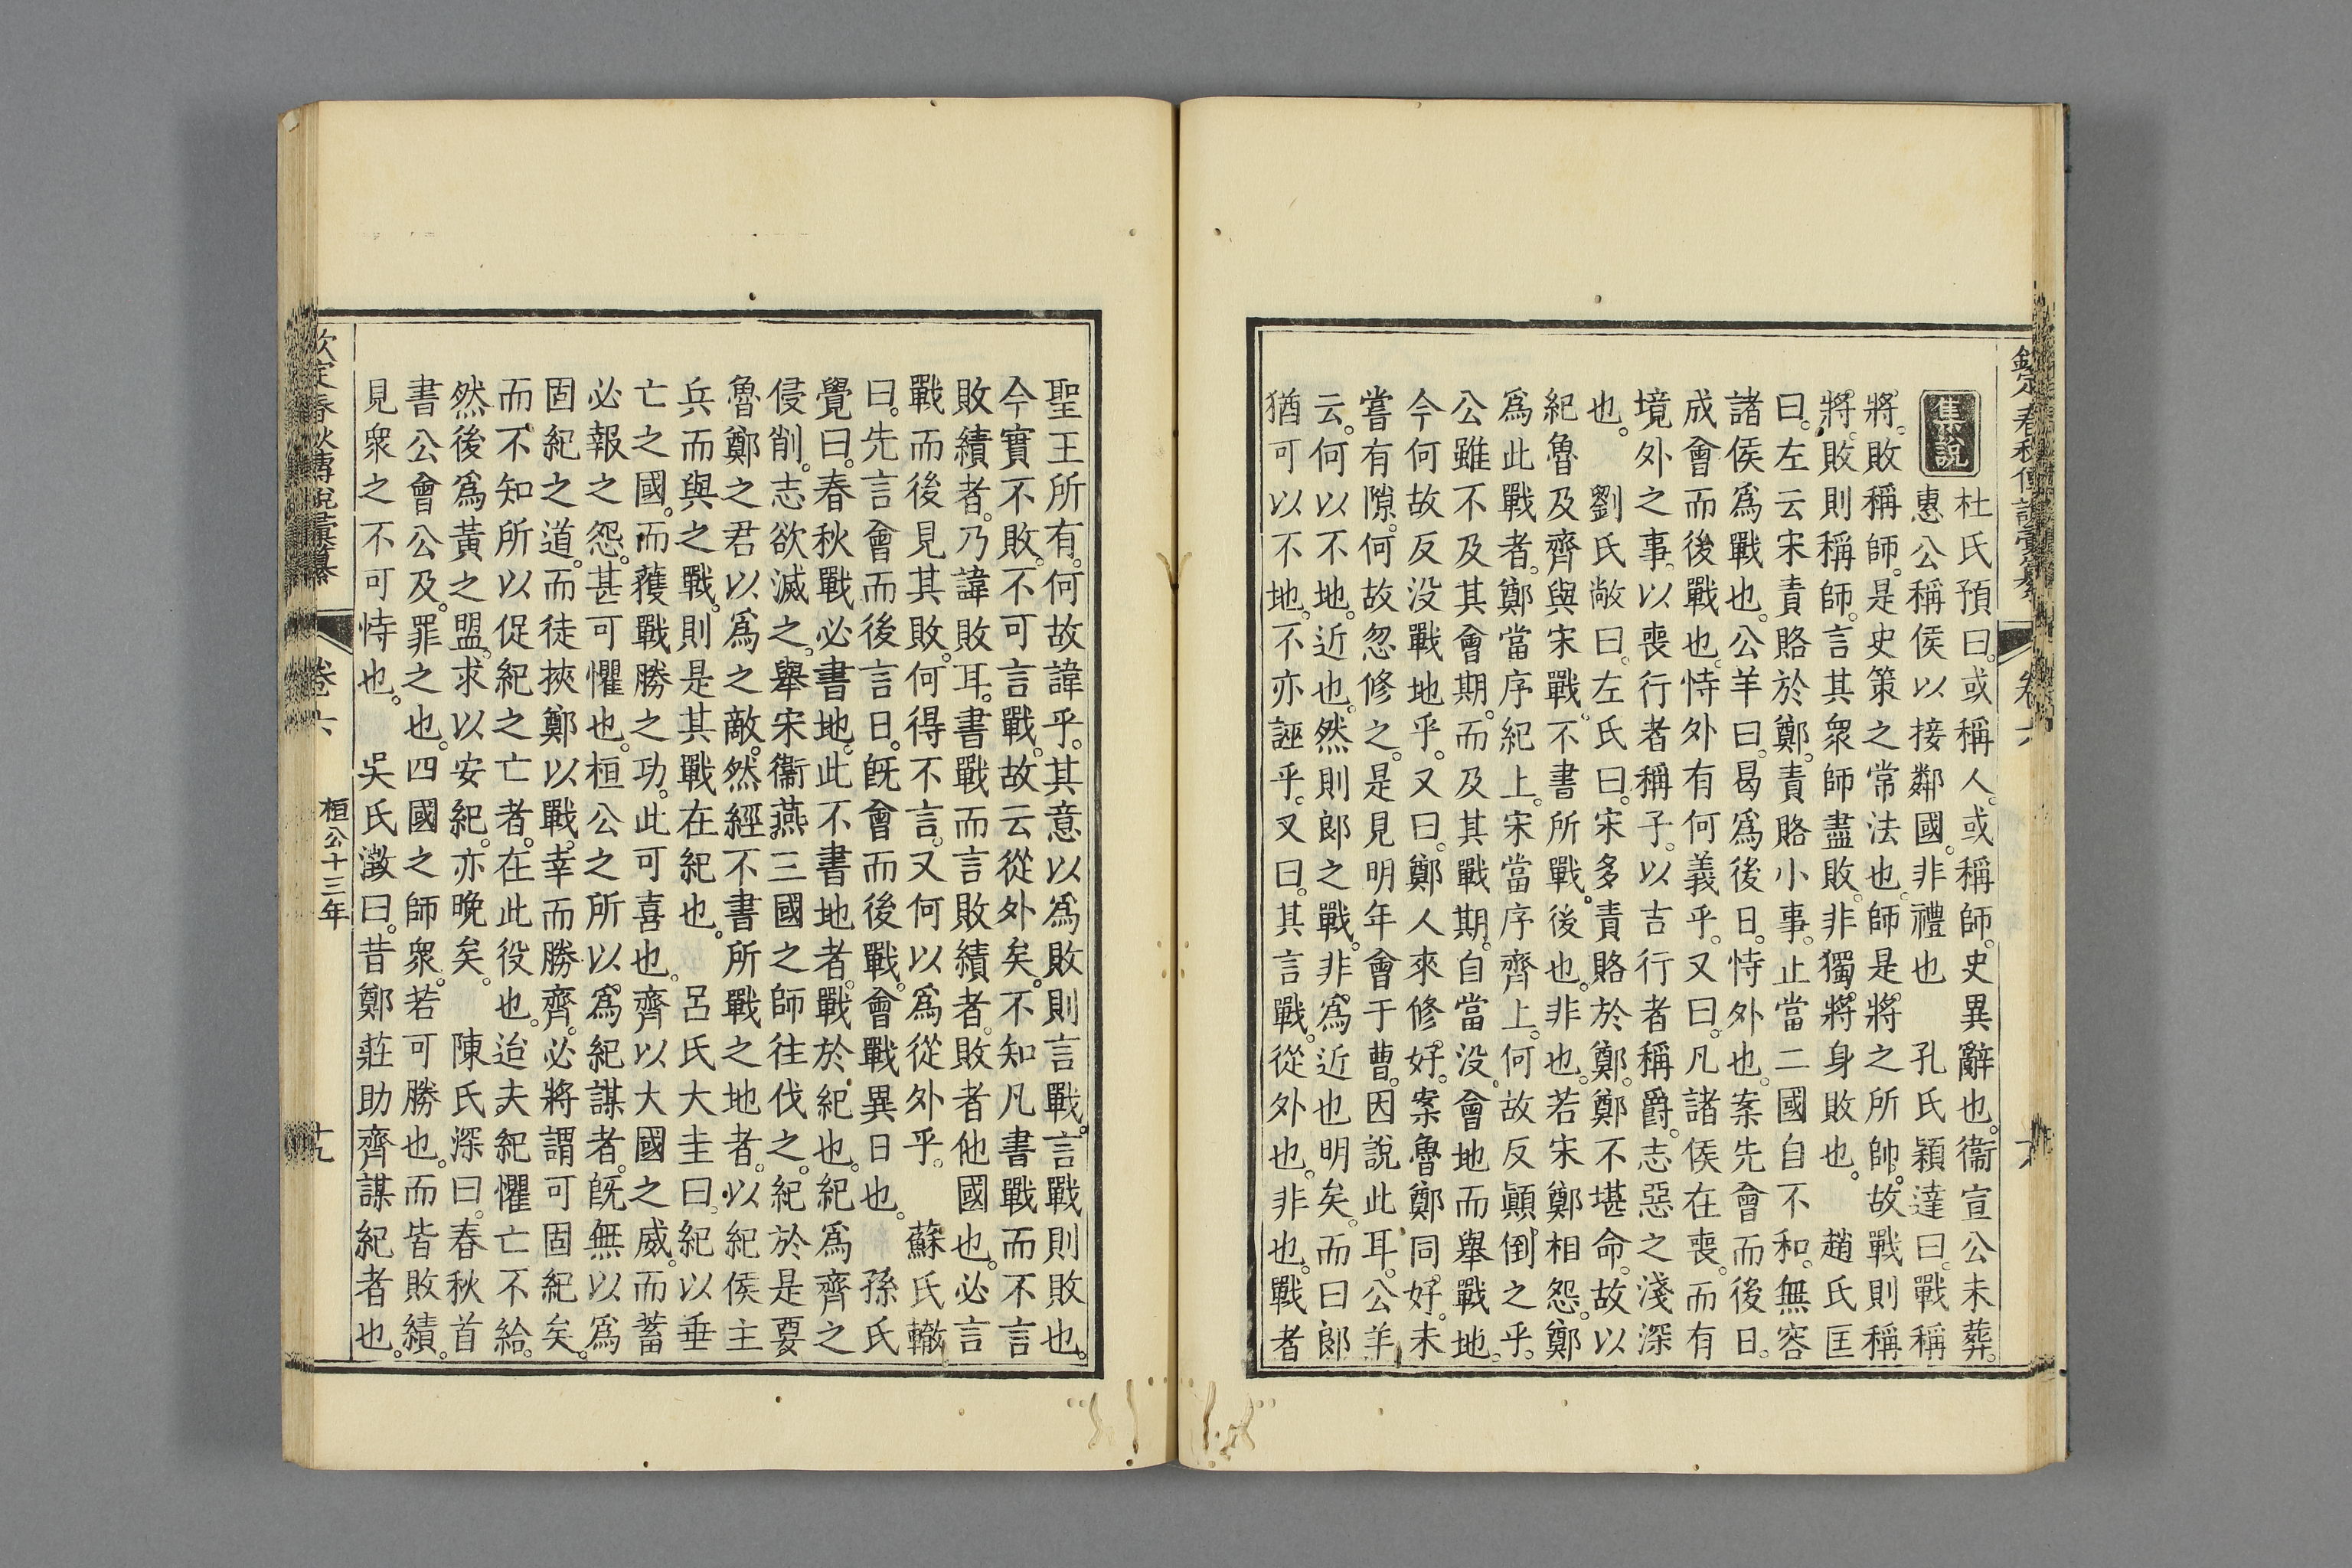 欽定春秋傳說彙纂 卷六
集說
杜氏預曰。或稱人。或稱師。史異辭也。衞宣公未葬。
惠公稱侯以接鄰國。非禮也 孔氏穎達曰。戰稱
將。敗稱師。是史策之常法也。師是將之所帥。故戰則稱
將。敗則稱師。言其衆師盡敗。非獨將身敗也。 趙氏匡
曰。左云宋責賂於鄭。責賂小事。止當二國自不和。無容
諸侯爲戰也。公羊曰。曷爲後日。恃外也。案先會而後日。
成會而後戰也。恃外有何義乎。又曰。凡諸侯在喪。而有
境外之事。以喪行者稱子。以吉行者稱爵。志惡之淺深
也。 劉氏敞曰。左氏曰。宋多責賂於鄭。鄭不堪命。故以
紀魯及齊與宋戰。不書所戰。後也。非也。若宋鄭相怨。鄭
爲此戰者。鄭當序紀上。宋當序齊上。何故反顚倒之乎。
公雖不及其會期。而及其戰期。自當没會地而舉戰地。
今何故反没戰地乎。又曰。鄭人來修好。案魯鄭同好。未
嘗有隙。何故忽修之。是見明年會于曹。因說此耳。公羊
云。何以不地。近也。然則郎之戰。非爲近也明矣。而曰郎
猶可以不地。不亦誣乎。又曰。其言戰。從外也。非也。戰者
聖王所有。何故諱乎。其意以爲敗則言戰。言戰則敗也。
今實不敗。不可言戰。故云從外矣。不知凡書戰而不言
敗績者。乃諱敗耳。書戰而言敗績者。敗者他國也。必言
戰而後見其敗。何得不言。又何以爲從外乎。 蘇氏轍
曰。先言會而後言日。旣會而後戰。會戰異日也。 孫氏
覺曰。春秋戰必書地。此不書地者。戰於紀也。紀爲齊之
侵削。志欲滅之。舉宋衞燕三國之師往伐之。紀於是要
魯鄭之君以爲之敵。然經不書所戰之地者。以紀侯主
兵而與之戰。則是其戰在紀也。 呂氏大圭曰。紀以垂
亡之國。而蔰戰勝之功。此可喜也。齊以大國之威。而蓄
必報之怨。甚可懼也。桓公之所以爲紀謀者。旣無以爲
固紀之道。而徒挾鄭以戰。幸而勝齊。必將謂可固紀矣。
而不知所以促紀之亡者。在此役也。迨夫紀懼亡不給。
然後爲黃之盟。求以安紀。亦晩矣。 陳氏深曰。春秋首
書公會公及。罪之也。四國之師衆。若可勝也。而皆敗績。
見衆之不可恃也。 吳氏澂曰。昔鄭莊助齊謀紀者也。
欽定春秋傳說彙纂 卷六 桓公十三年 十九